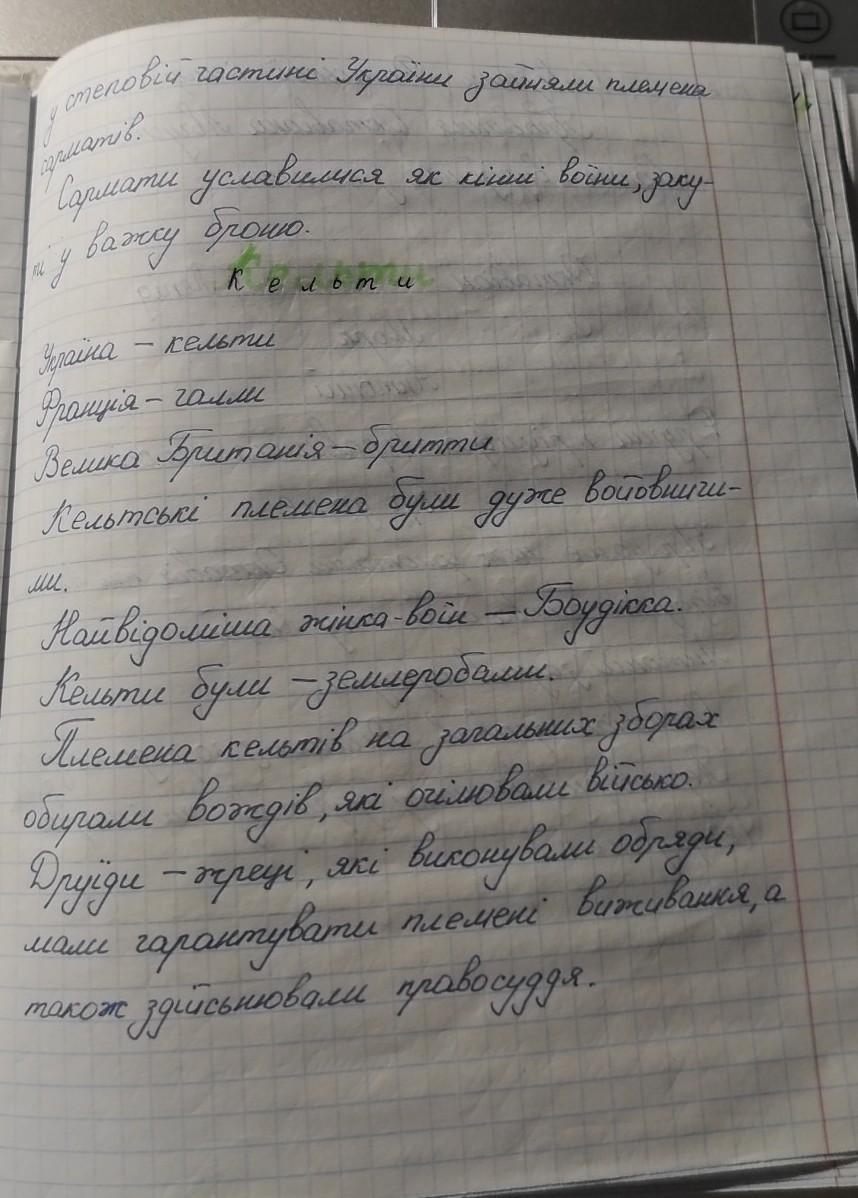 у степовій частині України зайняли племена
сарматів.
Сармати уславилися як кінні воїни, заку-
ті у важку броню.
Кельти
Україна – кельти
Франція – галли
Велика Британія – бритти
Кельтські племена були дуже войовничи-
ми.
Найвідоміша жінка-воїн – Боудікка.
Кельти були – землеробами.
Племена кельтів на загальних зборах
обирали вождів, які очілювали військо.
Друїди – жреці, які виконували обряди,
мали гарантувати племені виживання, а
також здійсьнювали правосуддя.